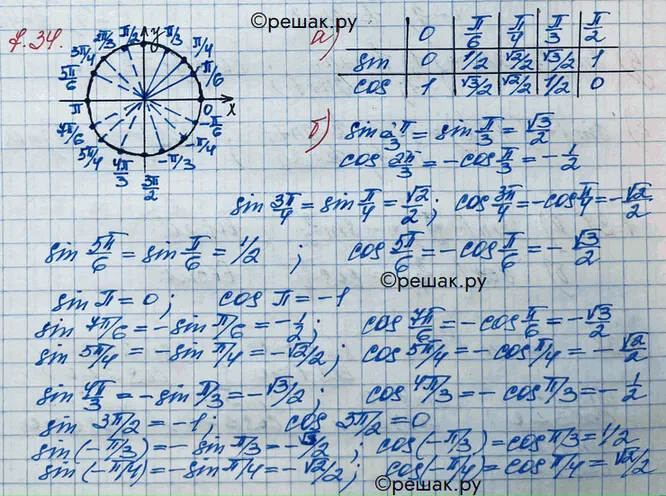 ©решак.ру
7.34.
y
π/2 π/3
2π/3 π/4
3π/4 π/6
5π/6
π 0 x
7π/6 -π/6
5π/4 -π/4
4π/3 3π/2 -π/3
а) 0 π/6 π/4 π/3 π/2
sin 0 1/2 √2/2 √3/2 1
cos 1 √3/2 √2/2 1/2 0
б) sin 2π/3 = sin π/3 = √3/2
cos 2π/3 = -cos π/3 = -1/2
sin 3π/4 = sin π/4 = √2/2; cos 3π/4 = -cos π/4 = -√2/2
sin 5π/6 = sin π/6 = 1/2; cos 5π/6 = -cos π/6 = -√3/2
©решак.ру
sin π = 0; cos π = -1
sin 7π/6 = -sin π/6 = -1/2; cos 7π/6 = -cos π/6 = -√3/2
sin 5π/4 = -sin π/4 = -√2/2; cos 5π/4 = -cos π/4 = -√2/2
sin 4π/3 = -sin π/3 = -√3/2; cos 4π/3 = -cos π/3 = -1/2
sin 3π/2 = -1; cos 3π/2 = 0
sin(-π/3) = -sin π/3 = -√3/2; cos(-π/3) = cos π/3 = 1/2
sin(-π/4) = -sin π/4 = -√2/2; cos(-π/4) = cos π/4 = √2/2
©решак.ру